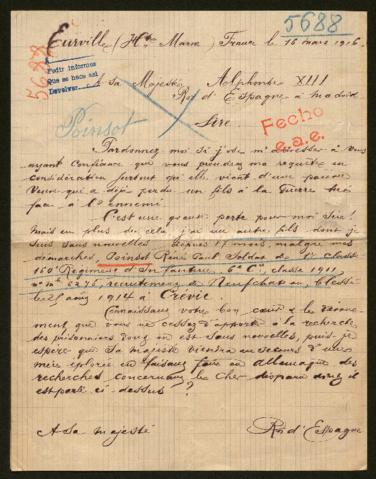 5688
Eurville (Hte Marne) France le 16 mars 1916.
5688
Pedir informes
Que se hace así
Devolver
A sa Majesté Alphonse XIII
Roi d'Espagne à Madrid
Poinsot
Sire
Fecho
e.a.e.
Pardonnez moi si j'ose m'adresser à vous
ayant confiance que vous prendrez ma requête en
considération surtout qu'elle vient d'une pauvre
Veuve qui a déjà perdu un fils à la Guerre tué
face à l'Ennemi
C'est une grande perte pour moi Sire!
mais en plus de cela, j'ai un autre fils dont je
suis sans nouvelles depuis 17 mois, malgré mes
démarches, Poinsot René Paul Soldat de 1re Classe
160e Régiment d'Infanterie, 6e Cie, classe 1911
no mle 5276, recrutement de Neufchateau, blessé
le 25 août 1914 à Crévic.
Connaissant votre bon cœur & le dévoue-
ment que vous ne cessez d'apporter à la recherche
des prisonniers dont on est sans nouvelles, puis-je
espérer que sa majesté viendra au secours d'une
mère éplorée en faisant faire en allemagne des
recherches concernant le cher disparu dont il
est parlé ci-dessus?
A sa majesté Roi d'Espagne